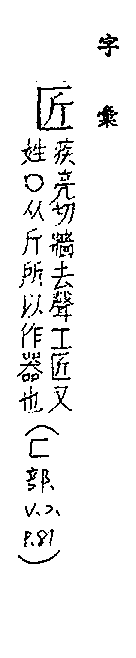 字彙
匠
疾亮切牆去聲工匠又
姓○从斤所以作器也(匚部.V.2.P.81)